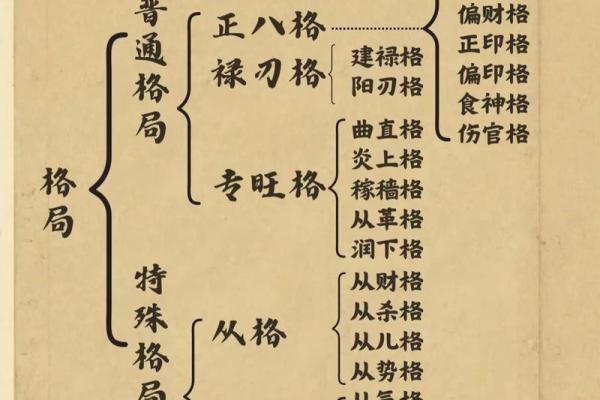 格局
普通格局
正八格
偏财格
正印格
偏印格
食神格
伤官格
禄刃格
建禄格
阳刃格
专旺格
曲直格
炎上格
稼穑格
从革格
润下格
特殊格局
从格
从财格
从杀格
从儿格
从势格